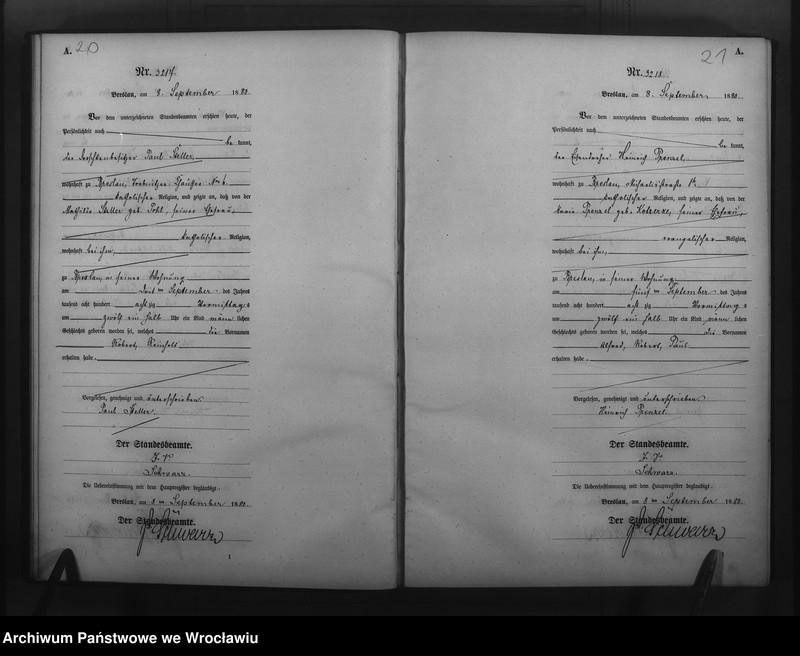 A. 20
Nr. 3217.
Breslau, am 8. September 1880.
Vor dem unterzeichneten Standesbeamten erschien heute, der
Persönlichkeit nach
be kannt,
der Droschkenbesitzer Paul Steller
wohnhaft zu Breslau, Trebnitzer Chaussee
katholischer Religion, und zeigte an, daß von der
Mathilde Steller geb. Pohl, seiner Ehefrau,
katholischer Religion,
wohnhaft bei ihm,
zu Breslau, in seiner Wohnung
am September des Jahres
tausend acht hundert acht zig Vormittag s
um zwölf ein halb Uhr ein Kind männ lichen
Geschlechts geboren worden sei, welches die Vornamen
Robert, Reinhold
erhalten habe.
Vorgelesen, genehmigt und unterschrieben
Paul Steller
Der Standesbeamte.
Schwarz.
Die Uebereinstimmung mit dem Hauptregister beglaubigt.
Breslau, am 8 ten September 1880.
Der Standesbeamte.
Schwarz
1
21 A.
Nr. 3218.
Breslau, am 8. September 1880.
Vor dem unterzeichneten Standesbeamten erschien heute, der
Persönlichkeit nach
be kannt,
der Heinrich
wohnhaft zu Breslau, Michaelisstraße
katholischer Religion, und zeigte an, daß von der
Maria geb. seiner Ehefrau,
evangelischer Religion,
wohnhaft bei ihm,
zu Breslau, in seiner Wohnung
am fünf ten September des Jahres
tausend acht hundert acht zig Vormittag s
um zwölf ein halb Uhr ein Kind männ lichen
Geschlechts geboren worden sei, welches die Vornamen
Alfred, Robert, Paul
erhalten habe.
Vorgelesen, genehmigt und unterschrieben
Heinrich
Der Standesbeamte.
Schwarz.
Die Uebereinstimmung mit dem Hauptregister beglaubigt.
Breslau, am 8 ten September 1880.
Der Standesbeamte.
Schwarz
Archiwum Państwowe we Wrocławiu